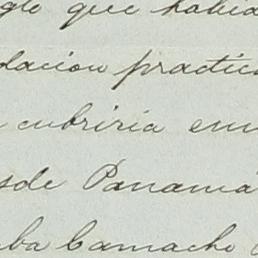 glo que había
dacion practic
cubriria em
sde Panamá
ba Camacho